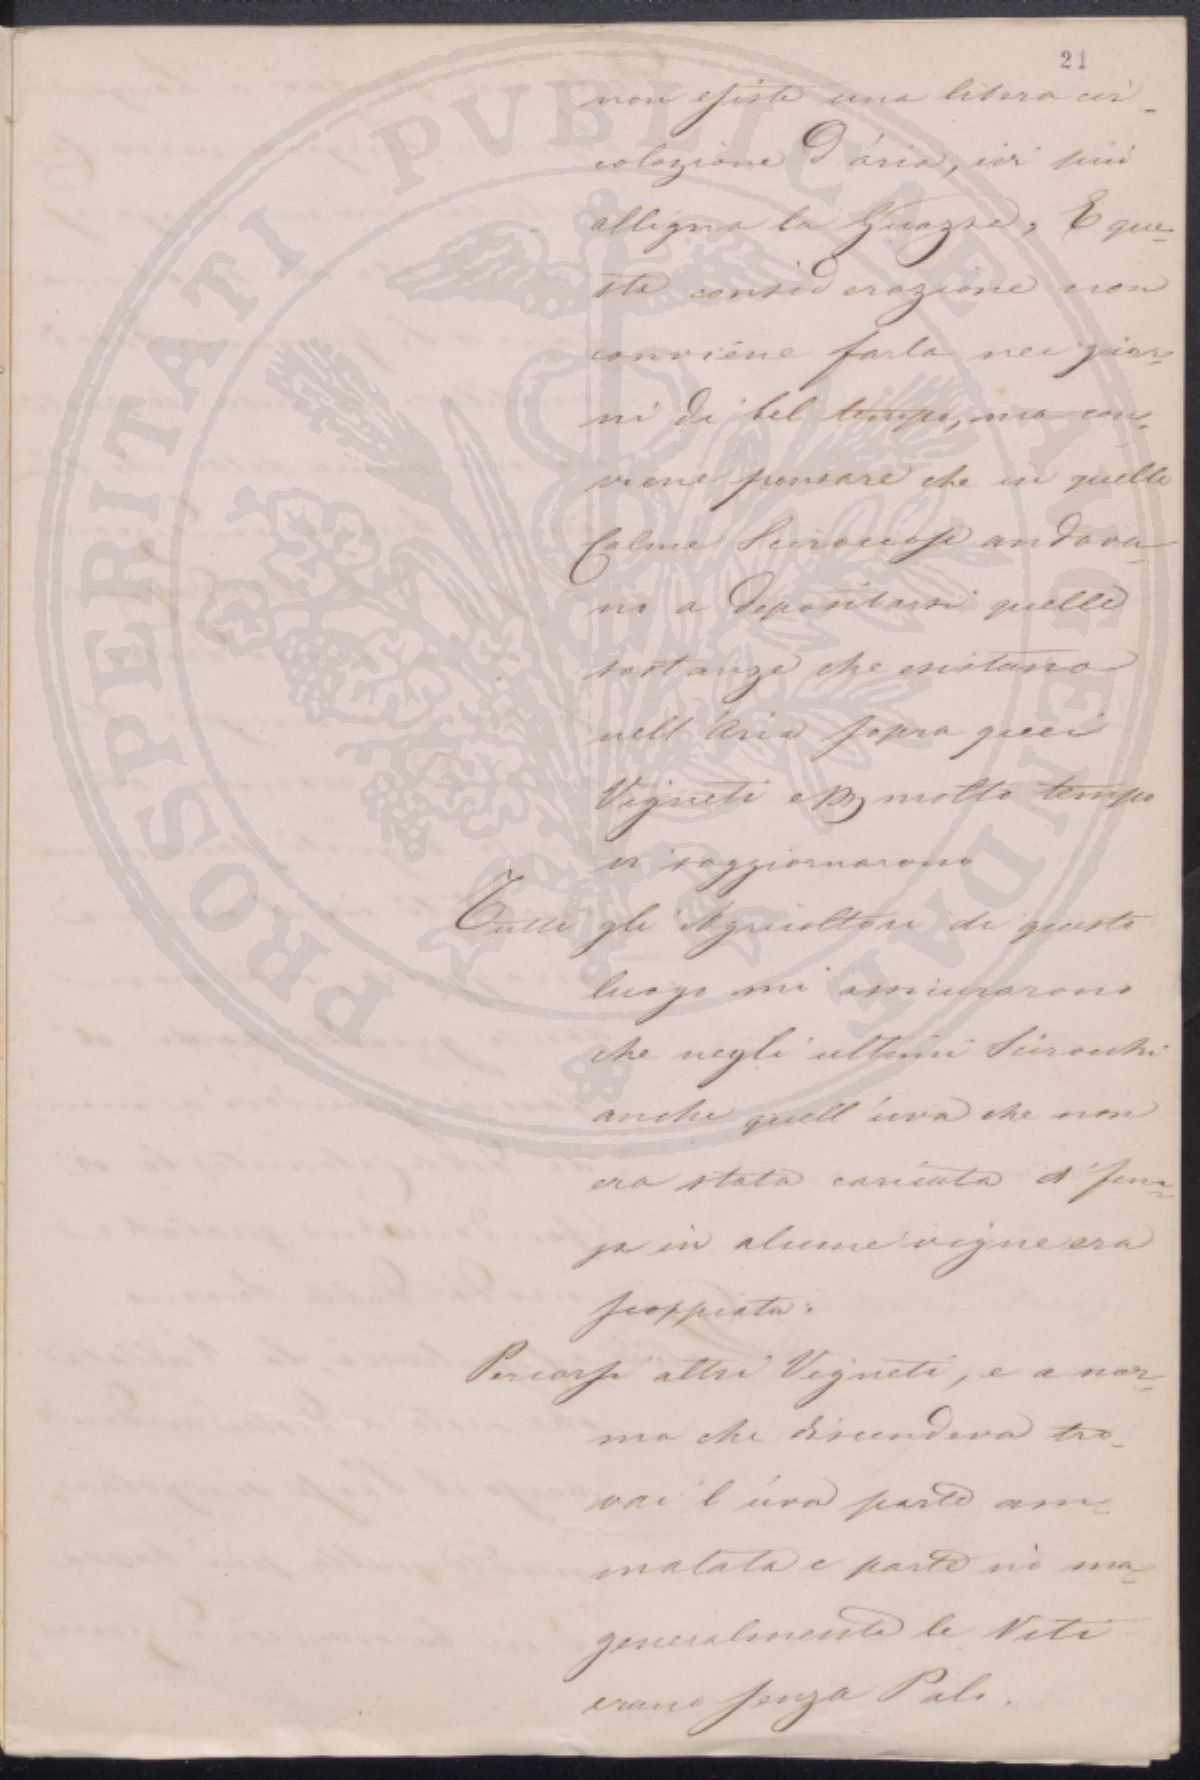 21
non esiste una libera cir-
colazione d'aria, ivi più
alligna la Guazza, E que-
sta considerazione non
conviene farla nei gior-
ni di bel tempo, ma con-
viene pensare che in quelle
Calme Sciroccose andava-
no a depositarsi quelle
sostanze che esistano
nell'Aria sopra quei
Vigneti e molto tempo
vi soggiornarono
Tutti gli Agricoltori di questo
luogo mi assicurarono
che negli ultimi Sirocchi
anche quell'uva che non
era stata caricata d'
in alcune vigne era
scoppiata.
Percorsi altri Vigneti, e a nor-
ma che discendeva tro-
vai l'uva parte am-
malata e parte nò ma
generalmente le Viti
erano senza Pali.
PROSPERITATI PVBLICAE AVGENDAE